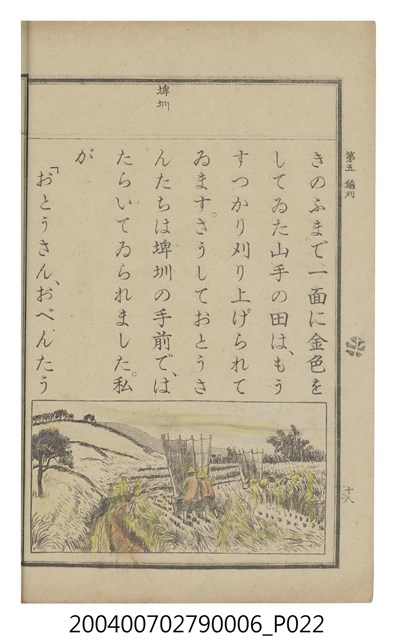 第五 稲刈
きのふまで一面に金色を
してゐた山手の田は、もう
すつかり刈り上げられて
ゐます。さうしておとうさ
んたちは埤圳の手前で、は
たらいてゐられました。私
が
「おとうさん、おべんたう
埤圳
十八
200400702790006_P022